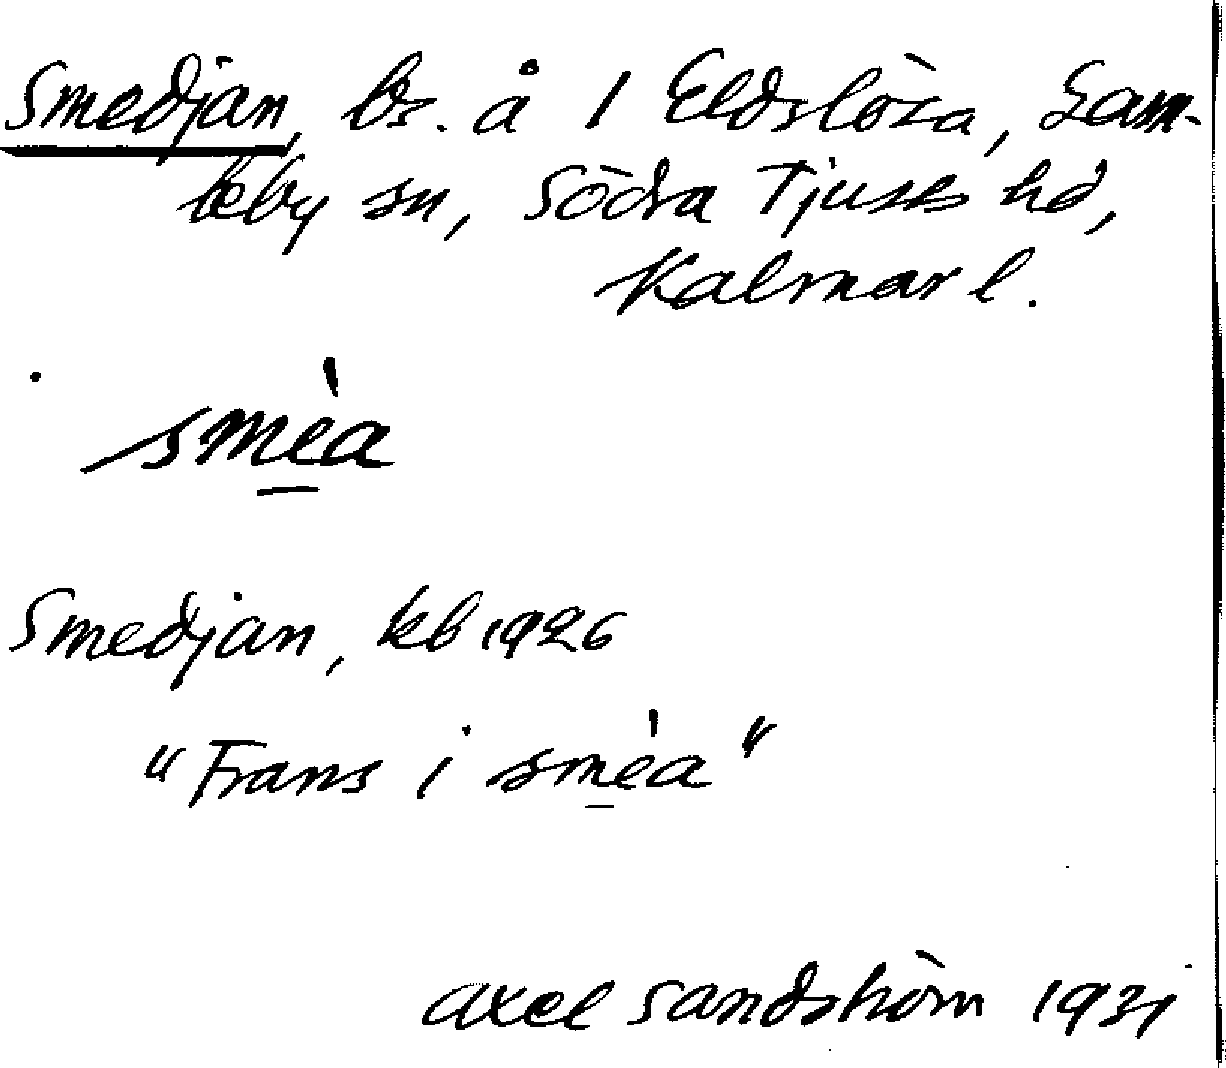 Smedjan, bs. å 1 Eldslösa, Gam-
leby sn, Södra Tjusts hd,
Kalmar l.
smèa
Smedjan, kb 1926
"Frans i smèa"
Axel Sandström 1931